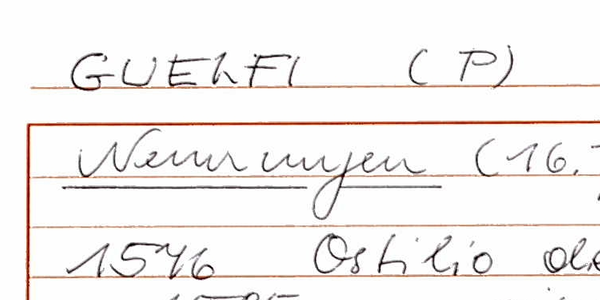 GUELFI (P)
Nennungen (16.
1546 Ostilio de